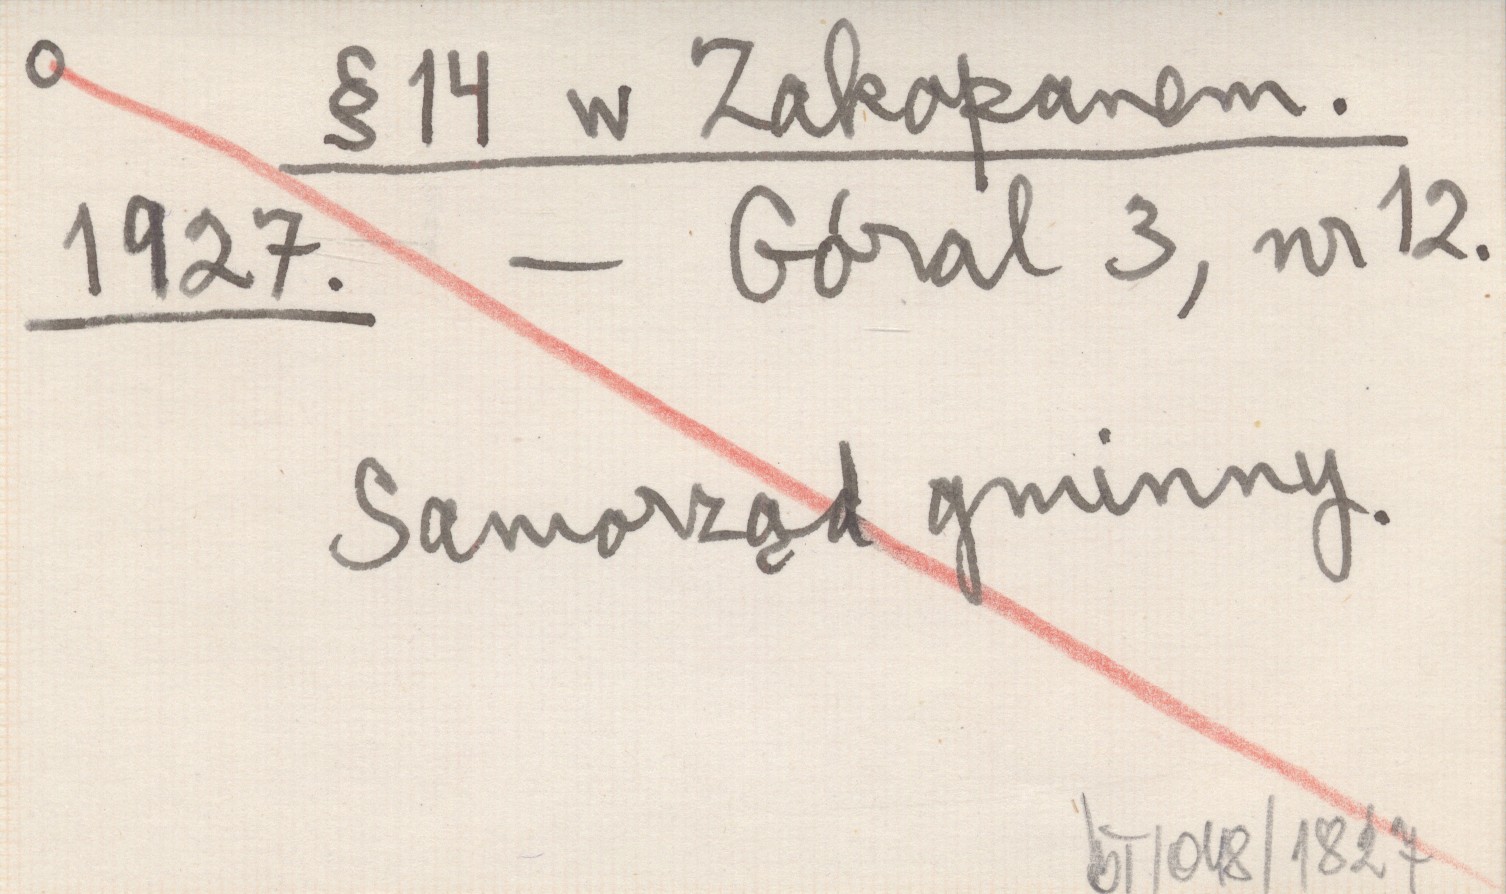 § 14 w Zakopanem.
1927. — Góral 3, nr 12.
Samorząd gminny.
/048/1827